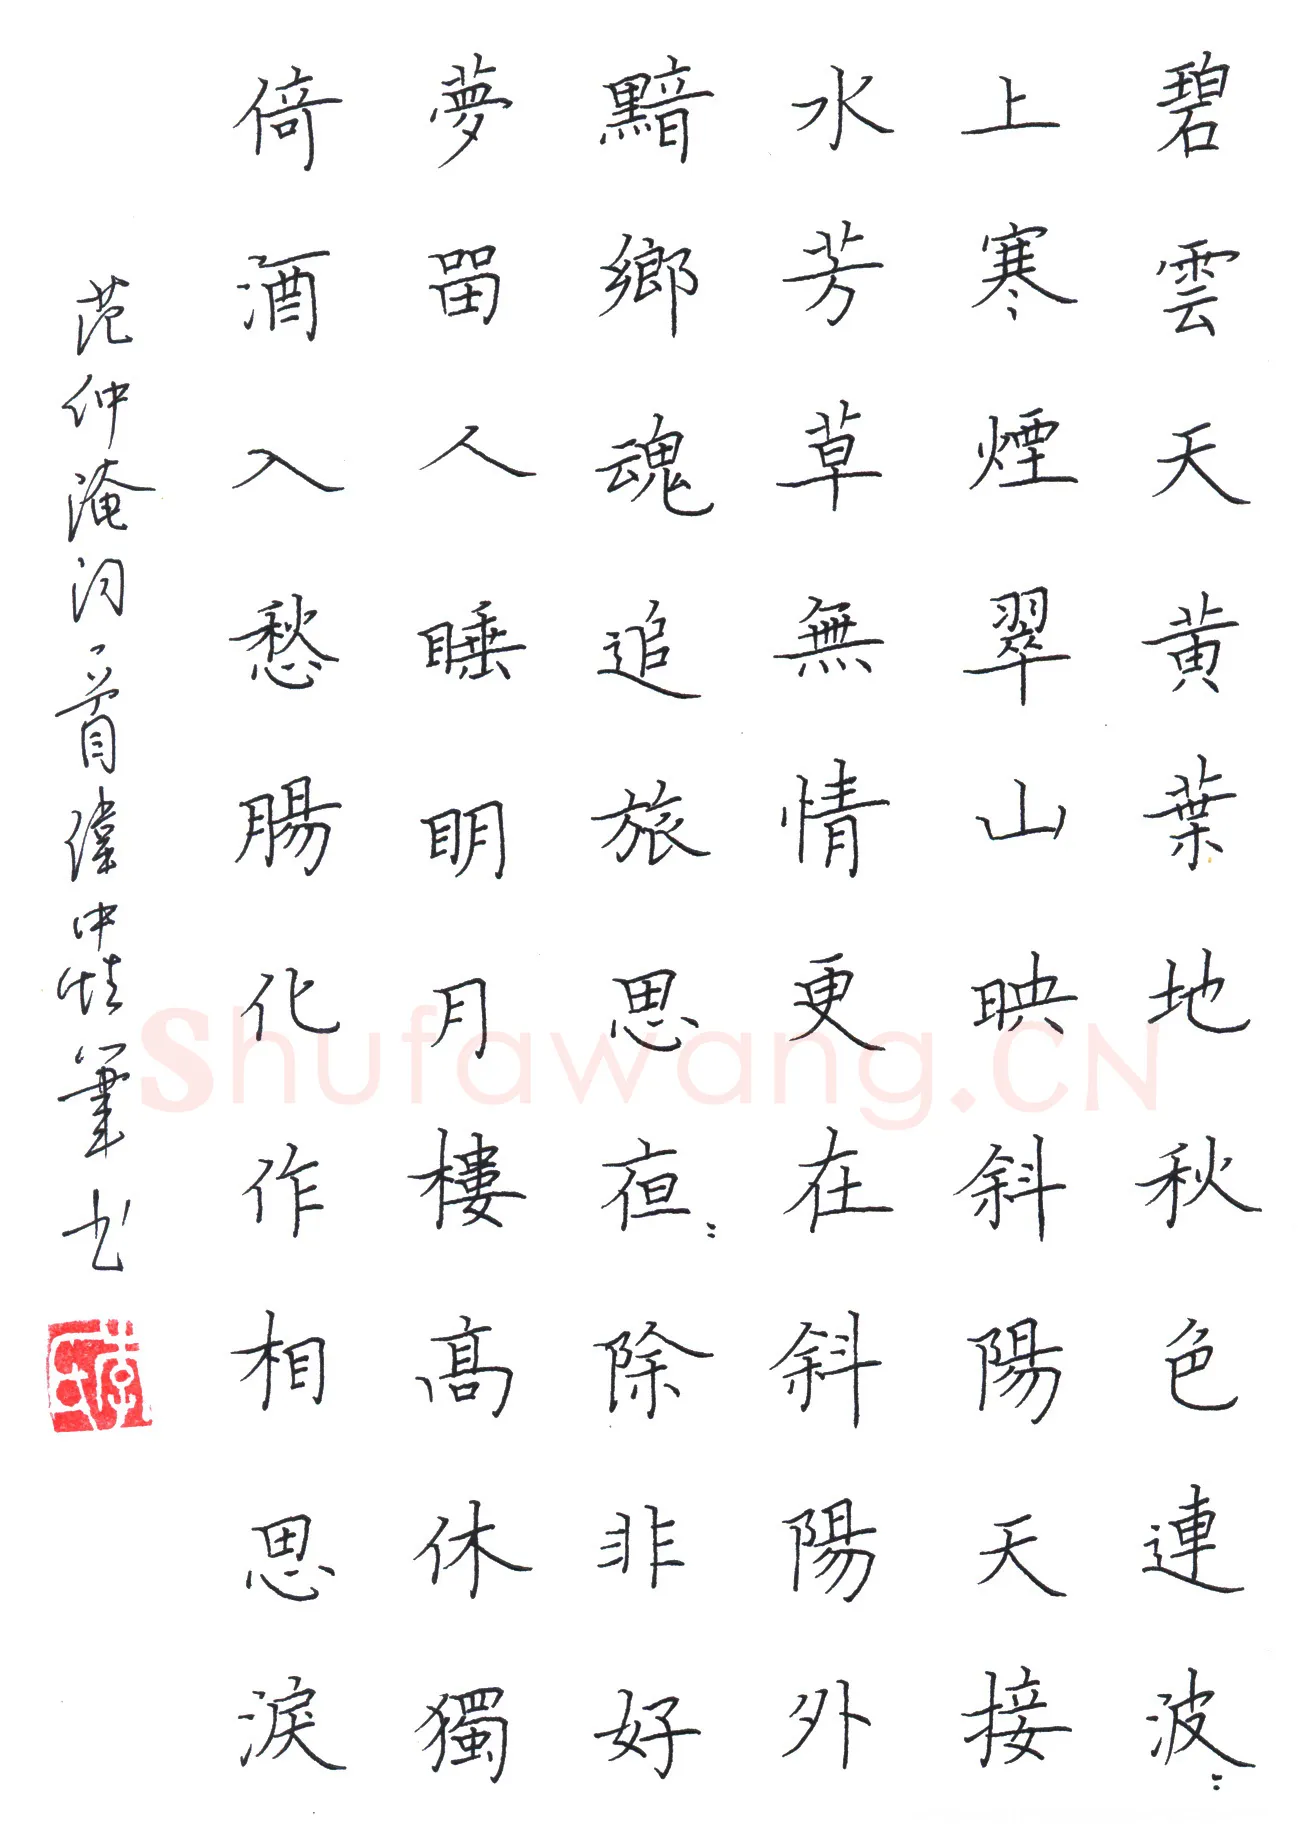 碧雲天黃葉地秋色連波〻
上寒煙翠山映斜陽天接
水芳草無情更在斜陽外
黯鄉魂追旅思亱〻除非好
夢留人睡眀月樓高休獨
倚酒入愁腸化作相思淚
范仲淹词一首偉中性筆书
Shufawang.CN